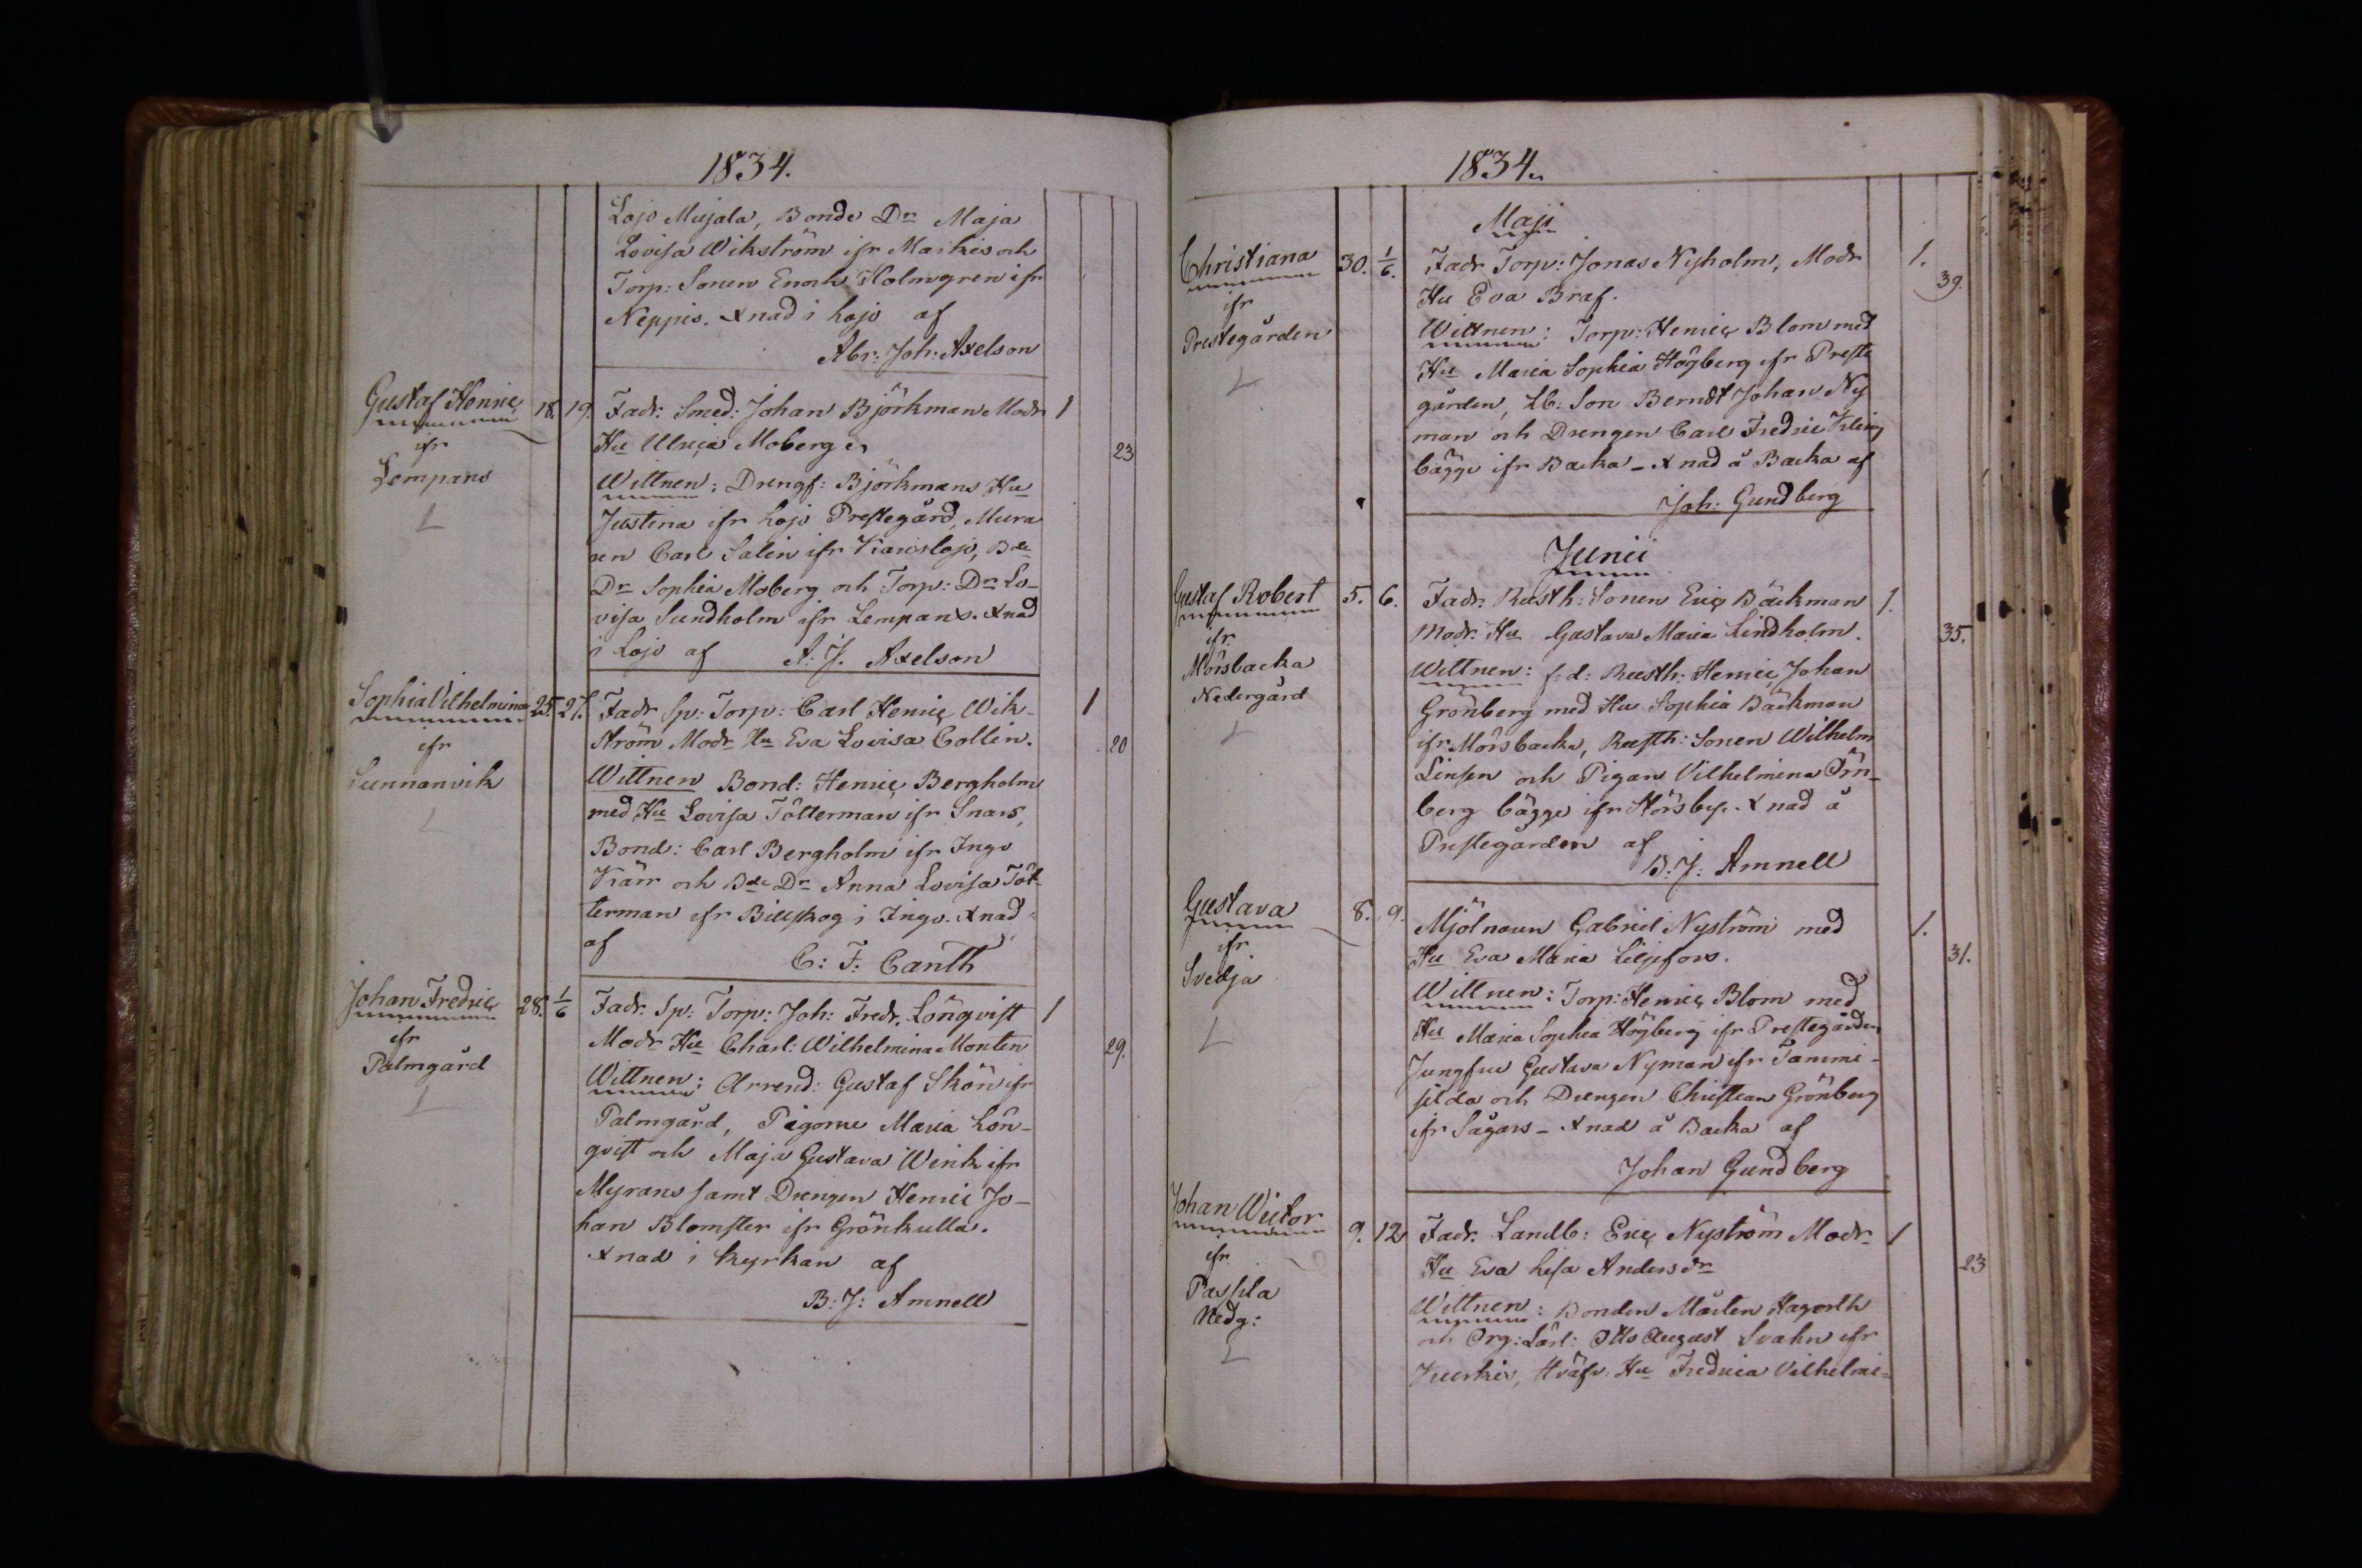 1834.
Lojo Mujala, Bonde Dr Maja
Lovisa Wikström ifr Markis och
Torp: Sonen Enoch Holmgren ifr
Neppis. Xnad i Lojo af
Abr: Joh: Axelson
Gustaf Henric 18. 19. Fadr: Smed: Johan Björkman Modr 1
ifr Hu Ulrica Moberg 23
Lempans
Wittnen: Drengf: Björkmans Hu
Justina ifr Lojo Prestegård, Mura
ren Carl Salin ifr Karislojo, Bde
Dr Sophia Moberg och Torp: Dr Lo-
visa Sundholm ifr Lempans. Xnad
i Lojo af A: J. Axelson
Sophia Vilhelmina 25. 27. Fadr Sp: Torp: Carl Henric Wik- 1
ifr ström Modr Hu Eva Lovisa Collin. 20
Lunnanvik Wittnen Bond: Henric Bergholm
med Hu Lovisa Tötterman ifr Snars,
Bond: Carl Bergholm ifr Ingo
Kärr och Bde Dr Anna Lovisa Töt-
terman ifr Billskog i Ingo. Xnad
af C: F: Canth
Johan Fredric 28. 1/6 Fadr: Sp: Torp: Joh: Fredr. Lönqvist 1
ifr Modr Hu Charl: Wilhelmina Monten 29.
Palmgård Wittnen: Arrend: Gustaf Skön ifr
Palmgård, Pigorne Maria Lön-
qvist och Maja Gustava Wink ifr
Myrans samt Drengen Henric Jo-
han Blomster ifr Grönkulla.
Xnad i Kyrkan af
B: J: Amnell
1834.
Maji
Christiana 30. 1/6. Fadr Torp: Jonas Nyholm, Modr 1.
ifr Hu Eva Braf. 39.
Prestegården Wittnen: Torp: Henric Blom med
Hu Maria Sophia Högberg ifr Preste
gården, Lb: Son Berndt Johan Ny
man och Drengen Carl Fredric Kling
bägge ifr Backa - Xnad å Backa af
Joh: Gundberg
Junii
Gustaf Robert 5. 6. Fadr: Rusth: Sonen Eric Bäckman 1.
ifr Modr. Hu Gustava Maria Lindholm. 35.
Mörsbacka Wittnen: f: d: Rusth: Henric Johan
Nedergård Grönberg med Hu Sophia Bäckman
ifr Mörsbacka, Rusth: Sonen Wilhelm
Linsen och Pigan Vilhelmina Örn-
berg bägge ifr Störsby. Xnad å
Prestegården af
B: J: Amnell
Gustava 8. 9. Mjölnaren Gabriel Nyström med 1.
ifr Hu Eva Maria Liljefors. 31.
Svedja Wittnen: Torp: Henric Blom med
Hu Maria Sophia Högberg ifr Prestegården
Jungfru Gustava Nyman ifr Tammi-
silda och Drengen Christian Grönberg
ifr Sågars - Xnad å Backa af
Johan Gundberg
Johan Wictor 9. 12 Fadr. Landb: Eric Nyström Modr- 1
ifr Hu Eva Lisa Anders dr 23
Paspla Wittnen: Bonden Mårten Hagerth
Nedg: och Org: Lärl: Otto August Svahn ifr
Jurkis, Hu Fredrica Vilhelmi-